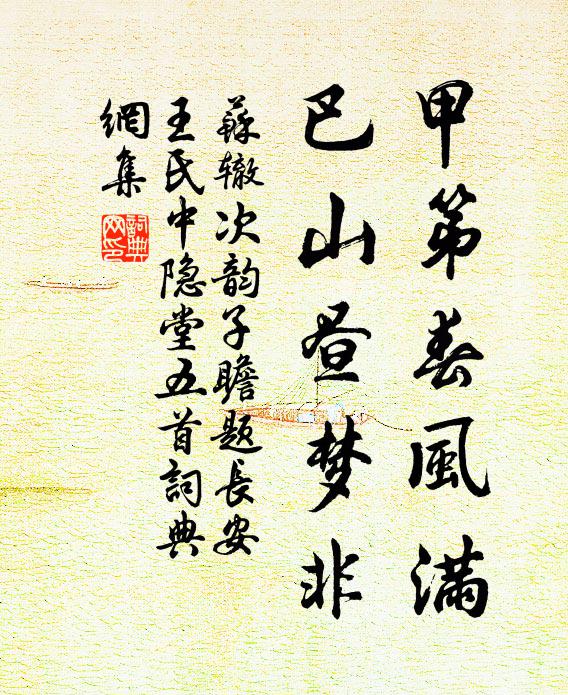 甲第春風满
巴山昼梦非
蘇辙次韵子瞻题長安
王氏中隐堂五首詞典
網集
詞典網印